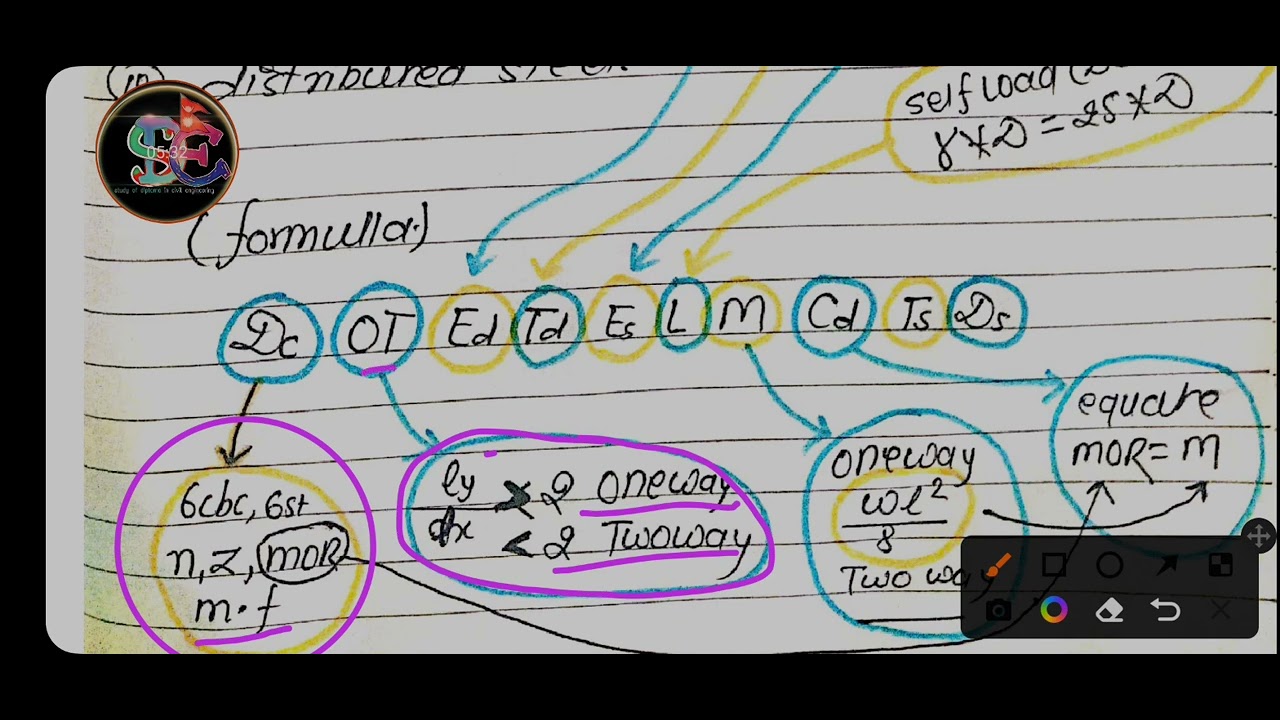 (iii) distributed steel
self load (D
γ*D = 25*D
SCE
05:32
study of diploma in civil engineering
(formulla.)
Dc OT Ed Td Es L M Cd Ts Ds
6cbc, 6st
n, z, mOR
m.f
ly/lx > 2 oneway
< 2 Twoway
oneway
wl²/8
Two way
equare
mOR = M